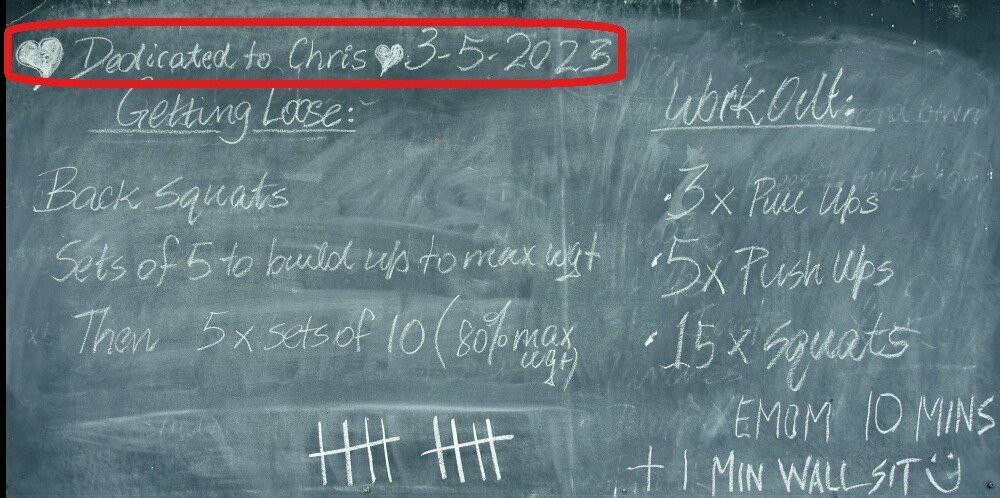 Dedicated to Chris 3-5-2023
Getting Loose:
Back Squats
Sets of 5 to build up to max wgt
Then 5x sets of 10 (80% max wgt)
Work Out:
3x Pull Ups
5x Push Ups
15x Squats
EMOM 10 MINS
+ 1 MIN WALL SIT